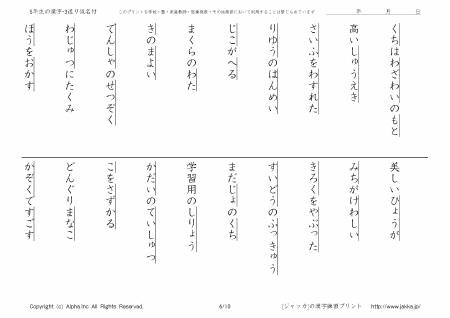 5年生の漢字-3送り仮名付 このプリントを学校・塾・家庭教師・医療機関・その他施設において利用することは禁じられています 年 月 日
くちはわざわいのもと
高いしゅうえき
さいふをわすれた
りゆうのはんめい
じこがへる
まくらのわた
きのまよい
でんしゃのせつぞく
わじゅつにたくみ
ほうをおかす
美しいひょうが
みちがけわしい
きろくをやぶった
すいどうのふっきゅう
まだじょのくち
学習用のしりょう
かだいのていしゅつ
こをさずかる
どんぐりまなこ
かぞくですごす
Copyright (c) Alpha.Inc All Rights Reserved. 6/10 [ジャッカ]の漢字練習プリント http://www.jakka.jp/